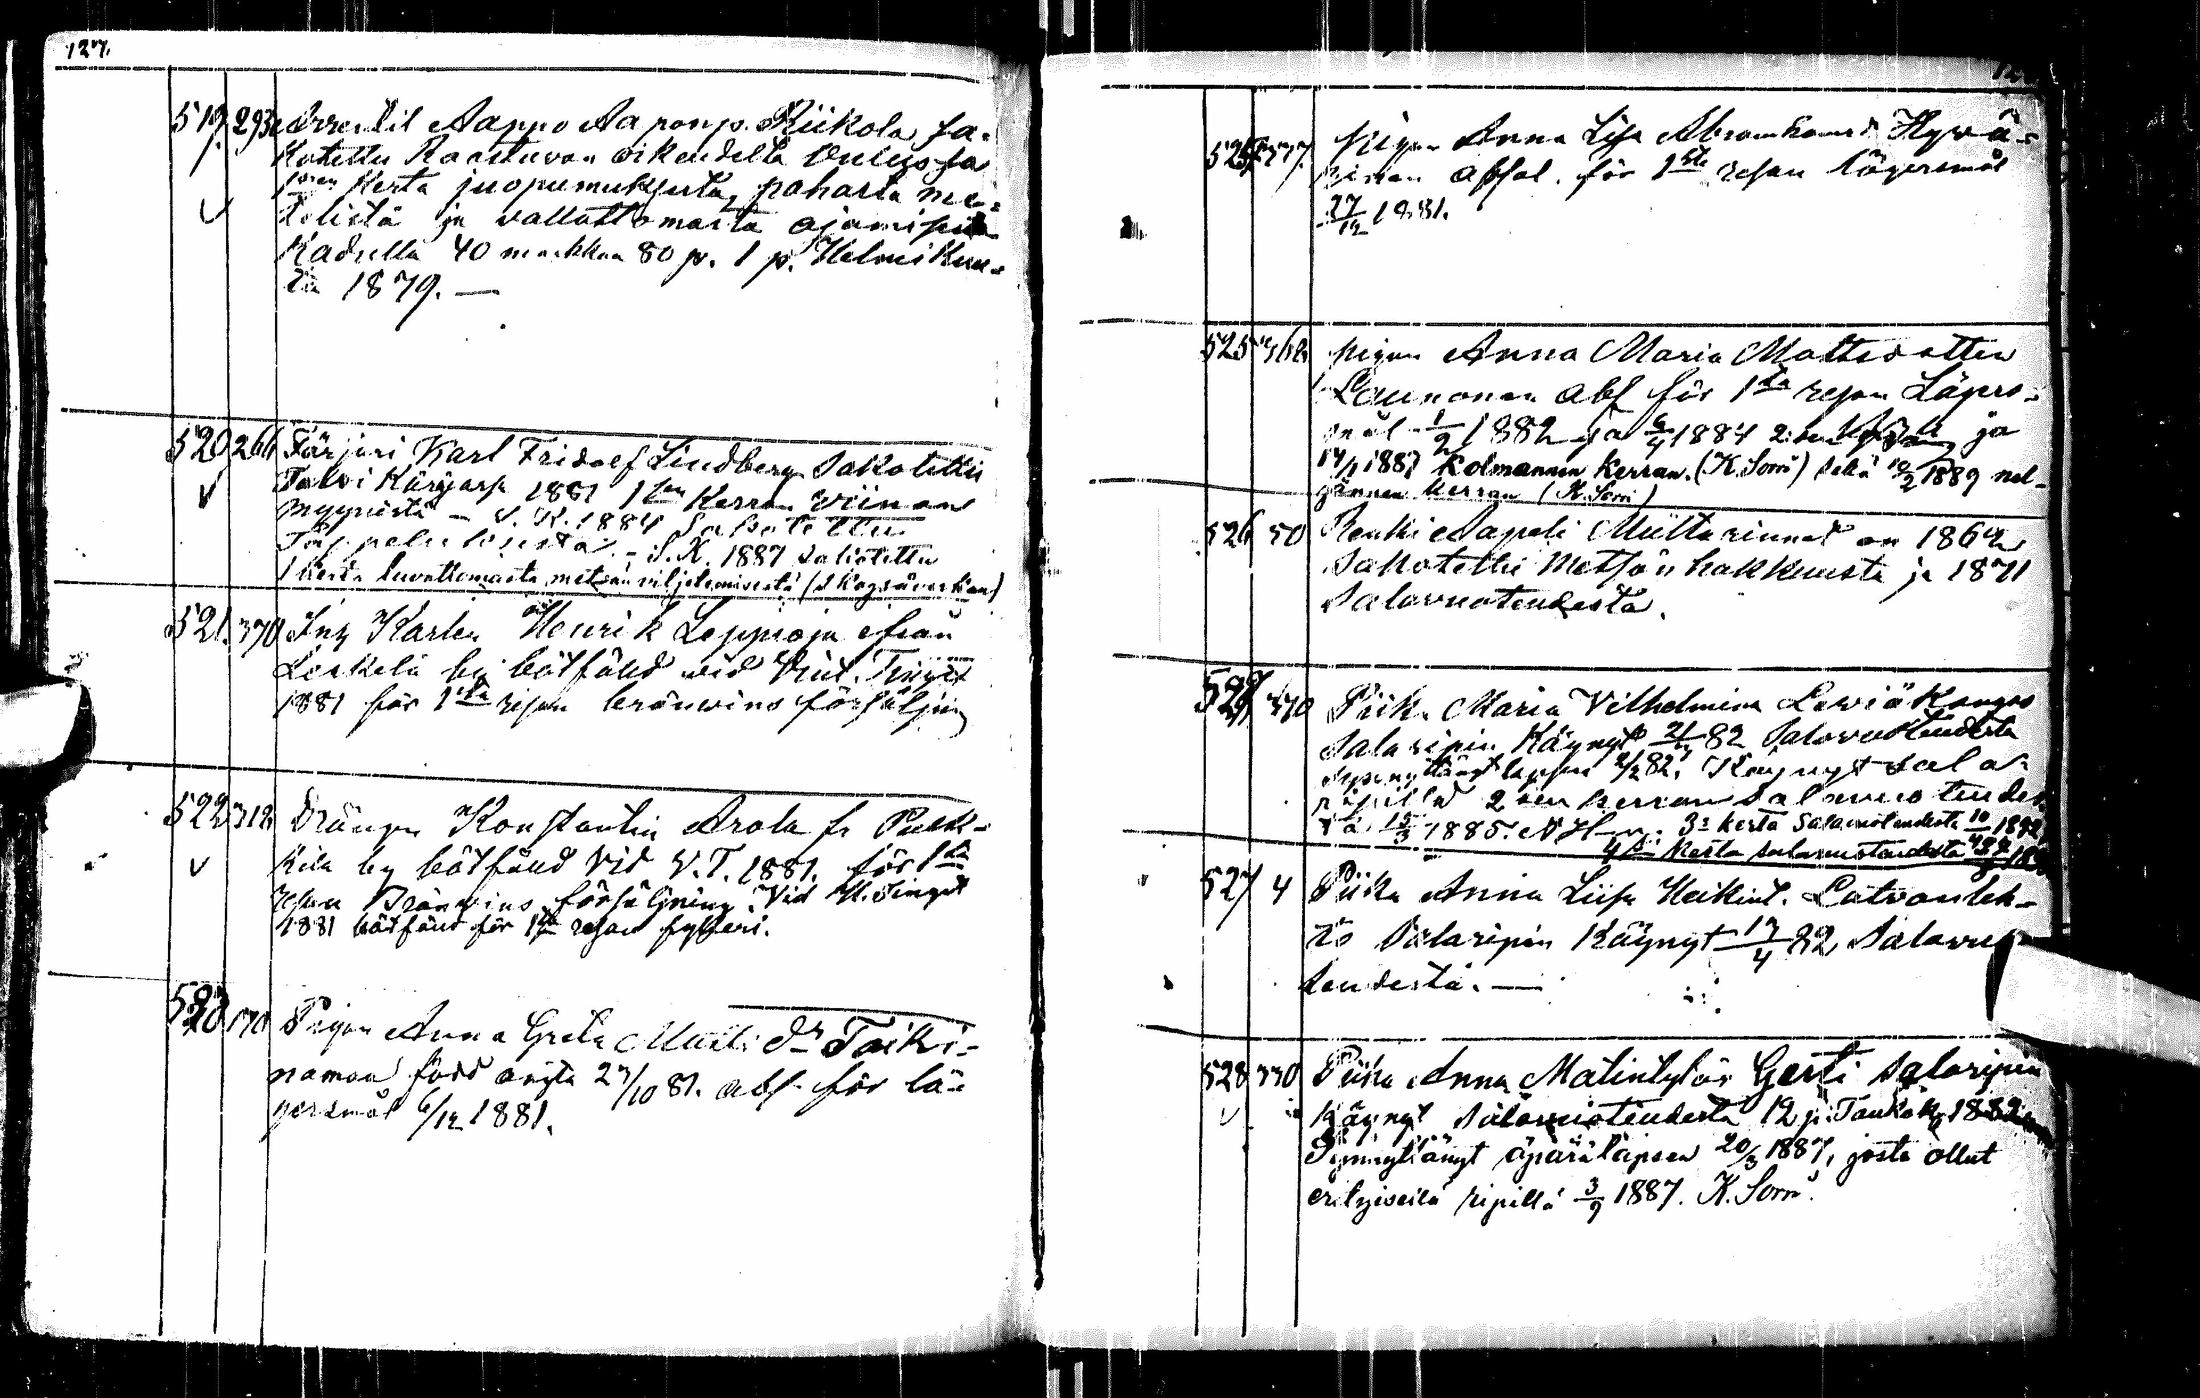 127.
519. 293 Arrentil Aappo Aaponp. Riikola sa-
kotettu Raastuvan oikeudelta Oulussa
1sen kerta juopumuksesta, pahasta me-
telistä ja vallattomasta ajamisesta
Kadulla 40 markkaa 80 p. 1 p. Helmikuu-
ta 1879. —
520 266 Färjäri Karl Fridolf Lindberg Sakotettu
Talvi Käräjässä 1881 1sen Kerran Viinan
myynistä — S. K. 1884 Sakotettu
Tappeluksista. — S. K. 1887 sakotettu
1 kerta luvattomasta metsän viljelemisestä (skogsåverkan)
521. 370 Inh Karlen Henrik Leppioja från
Leskelä by bötfäld vid Vint. Tinget
1881 för 1sta resan bränvins försäljning
522 312 Drängen Konstantin Arola fr Pulk-
kila by bötfäld vid V. T. 1881. för 1sta
resan Bränvins försäljning. Vid H. Tinget
1881 bötfäld för 1sta resan fylleri.
523 170 Pigan Anna Greta Matti dr Taiki-
namon född oägta 27/10 81. abs. för lä-
gersmål 6/12 1881.
524 377. pigan Anna Lisa Abramhamsd Hyvä-
rinen absol. för 1sta resan lägersmål
27/12 1881.
525 362 pigan Anna Maria Mattsdotter
Launonen abs för 1sta resan Lägers-
mål 1/2 1882 ja 6/4 1884 2:sen ja
14/1 1887 kolmannen kerran. (K. Sorri) sekä 10/2 1889 nel-
jännen kerran (K. Sorri)
526 50 Renki Aapeli Miilurinnat on 1864
Sakotettu Metsän hakkuusta ja 1871
Salavuoteudesta.
370 Piik. Maria Vilhelmina Leviäkangas
Salaripin Käynyt 21/4 82 Salavuoteudesta
synnyttänyt lapsen 2/2 82. Käynyt sala-
ripillä 2sen kerran salavuoteudes-
ta 15/3 1885. 3s kerta Salavuoteudesta 10/4 1892
4s kerta salavuoteudesta
527 4 Piika Anna Liisa Heikint. Latvanleh-
to Salaripin Käynyt 17/4 82 Salavuo-
teudesta. —
528 370 Piika Anna Matintytär Gerti salaripin
käynyt salavuoteudesta 12 p. Toukok. 1882
Synnyttänyt äpärälapsen 20/3 1887, josta ollut
erityisellä ripillä 3/9 1887. K. Sorri.